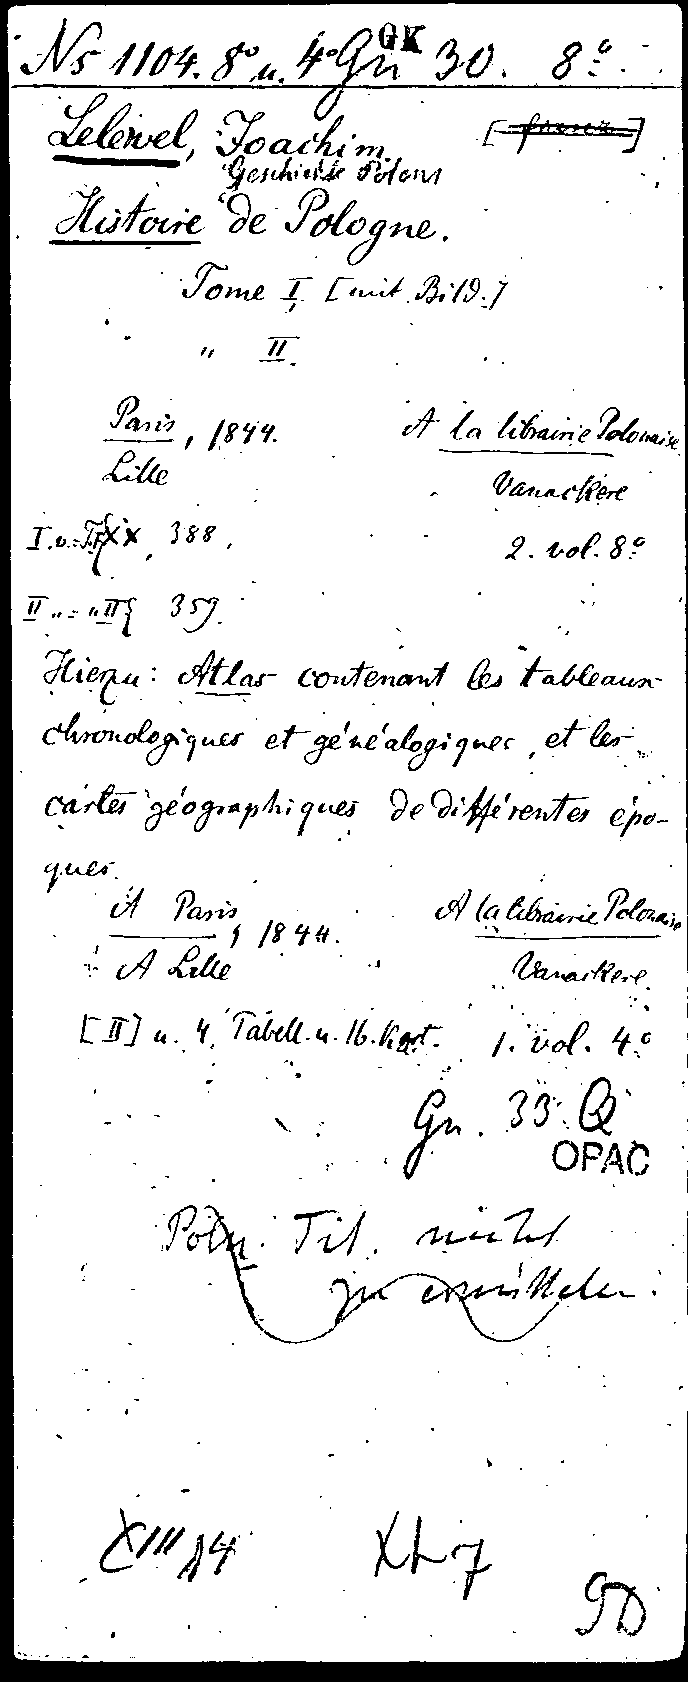 GK
Ns 1104. 8° u. 4° Gn 30. 8°.
Lelewel, Joachim [franz.]
Geschichte Polens
Histoire de Pologne.
Tome I, [mit Bild.]
" II.
Paris, 1844. A la librairie Polonaise
Lille Vanackere
I. XX, 388. 2. vol. 8°
II 359.
Hiezu: Atlas contenant les tableaux
chronologiques et généalogiques, et les
cartes géographiques de différentes épo-
ques.
A Paris, 1844. A la librairie Polonaise
A Lille Vanackere.
[II] u. 4. Tabell. u. 16. Kart. 1. vol. 4°
Gn. 33 Q
OPAC
Poln. Tit. nicht
zu ermitteln.